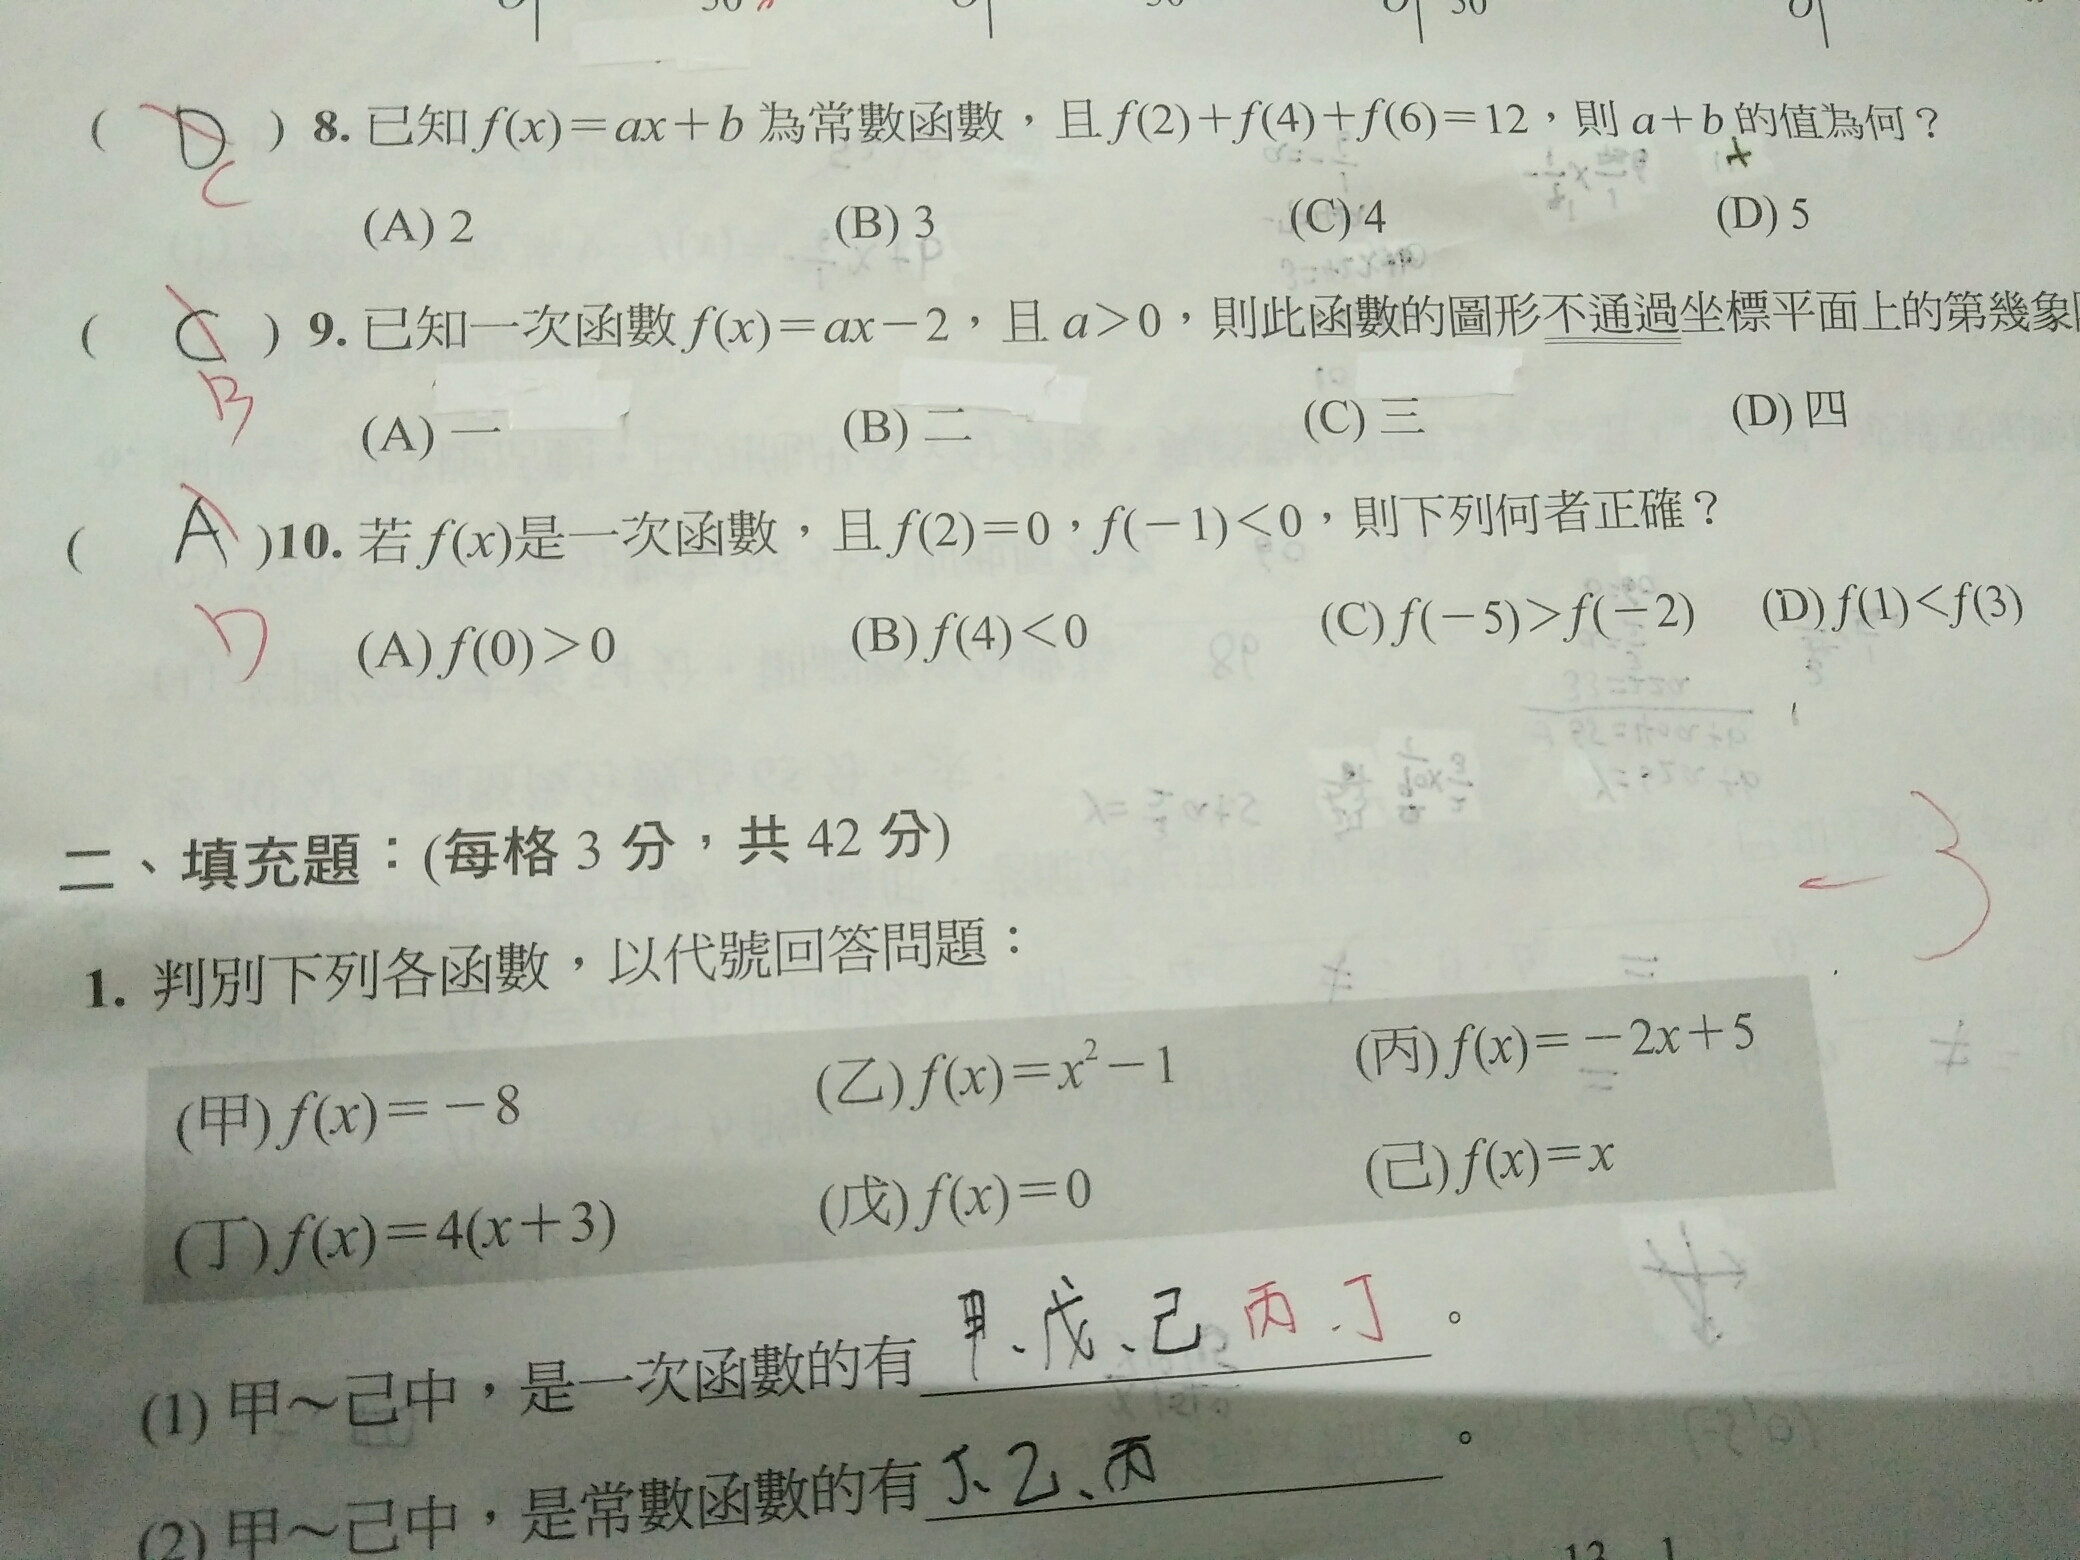 ( D ) 8. 已知 f(x)=ax+b 為常數函數，且 f(2)+f(4)+f(6)=12，則 a+b 的值為何？
C
(A) 2 (B) 3 (C) 4 (D) 5
( C ) 9. 已知一次函數 f(x)=ax-2，且 a>0，則此函數的圖形不通過坐標平面上的第幾象
B
(A) 一 (B) 二 (C) 三 (D) 四
( A )10. 若 f(x)是一次函數，且 f(2)=0，f(-1)<0，則下列何者正確？
(A) f(0)>0 (B) f(4)<0 (C) f(-5)>f(-2) (D) f(1)<f(3)
二、填充題：(每格 3 分，共 42 分)
-3
1. 判別下列各函數，以代號回答問題：
(甲) f(x)=-8 (乙) f(x)=x²-1 (丙) f(x)=-2x+5
(丁) f(x)=4(x+3) (戊) f(x)=0 (己) f(x)=x
(1) 甲～己中，是一次函數的有 甲、戊、己 丙.丁。
(2) 甲～己中，是常數函數的有 丁、乙、丙。